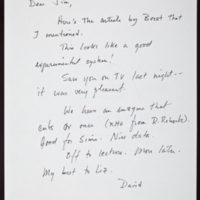 Dear Jim,
Here's the article by Borst that
I mentioned.
This looks like a good
experimental system!
Saw you on TV last night --
it was very pleasant.
We have an enzyme that
cuts or once (from D. Roberts).
Good for Simi. Nice data.
Off to lecture. More later.
My best to Liz.
David